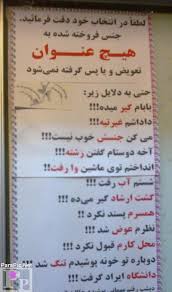 لطفاً در انتخاب خود دقت فرمائید.
جنس فروخته شده به
هیچ عنوان
تعویض و یا پس گرفته نمی‌شود
حتی به دلایل زیر:
بابام گیر میده!!!
داداشم غیرتیه!!!
می گن جنسش خوب نیست!!!
آخه دوستام گفتن رشته!!!
انداختم توی ماشین وا رفت!!
شستم آب رفت!!!
گشت ارشاد گیر می‌ده!!!
همسرم پسند نکرد!!
نظرم عوض شد!!!
محل کارم قبول نکرد!!!
دوباره تو خونه پوشیدم تنگ شد!!!
دانشگاه ایراد گرفت!!!